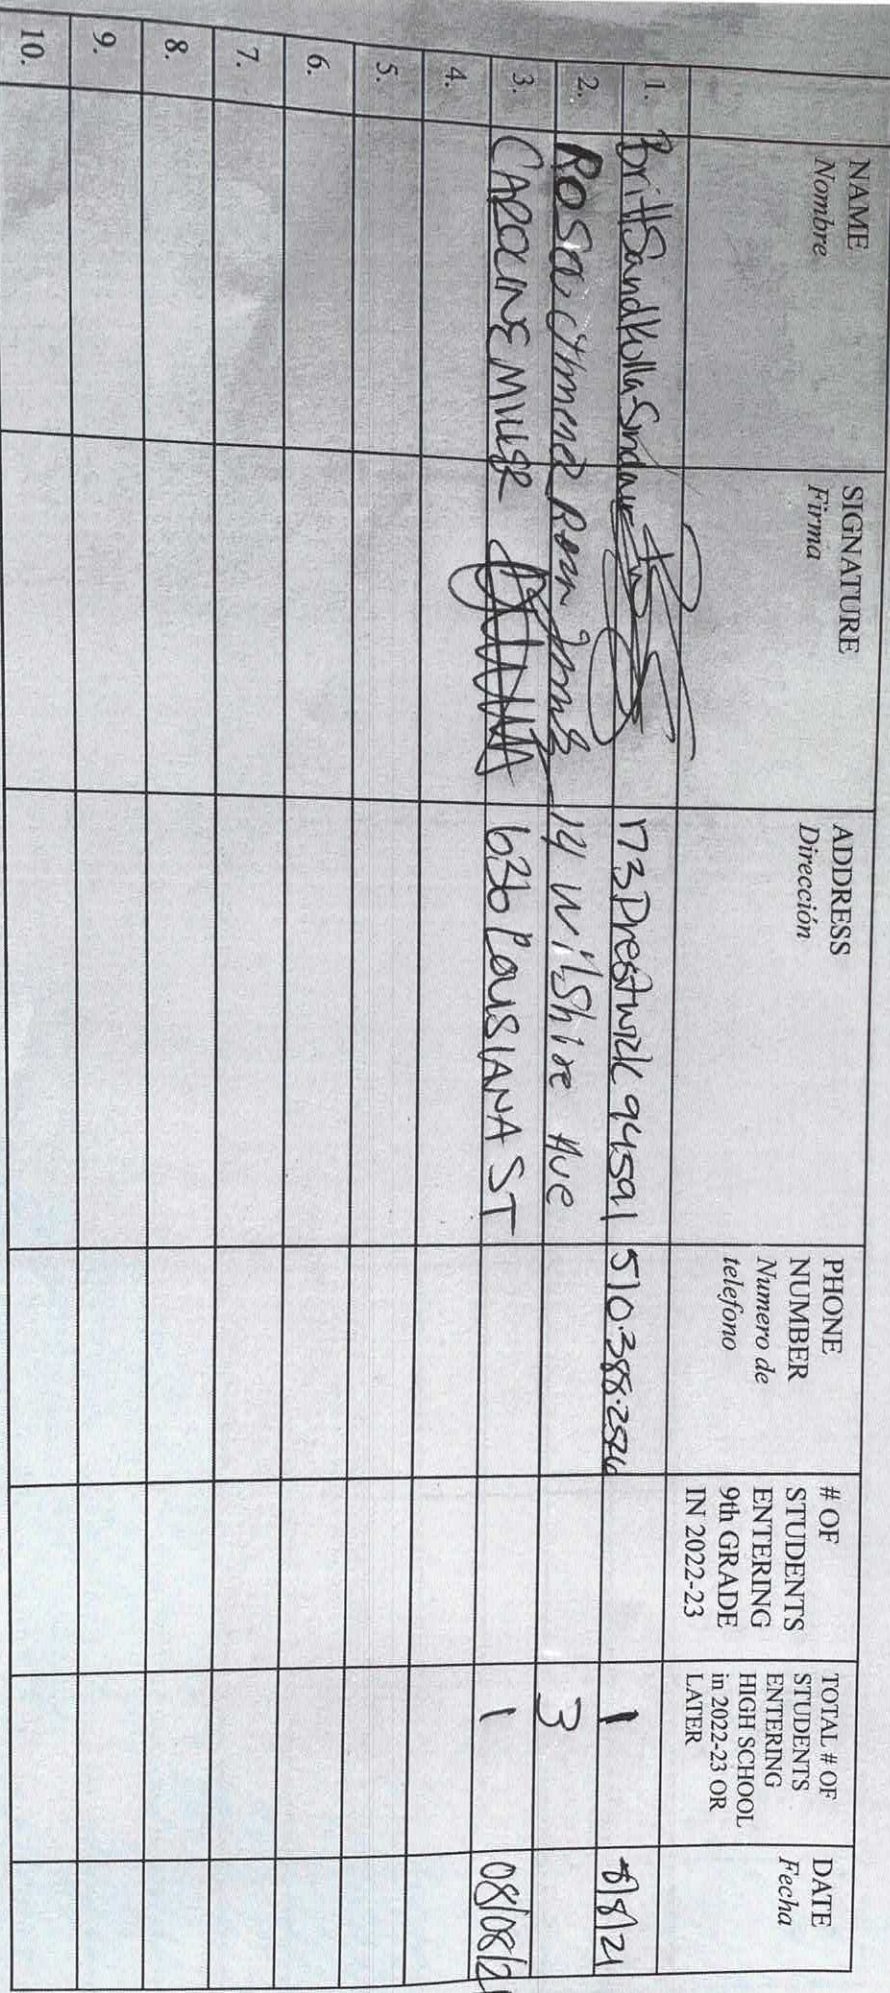 NAME
Nombre
SIGNATURE
Firma
ADDRESS
Dirección
PHONE
NUMBER
Numero de
telefono
# OF
STUDENTS
ENTERING
9th GRADE
IN 2022-23
TOTAL # OF
STUDENTS
ENTERING
HIGH SCHOOL
in 2022-23 OR
LATER
DATE
Fecha
1. Britt 173 Prestwick 94591 1 8/8/21
2. Rosa 14 Wilshire Ave 3
3. CAROLINE MILLER 636 LOUISIANA ST 1 08/08/21
4.
5.
6.
7.
8.
9.
10.